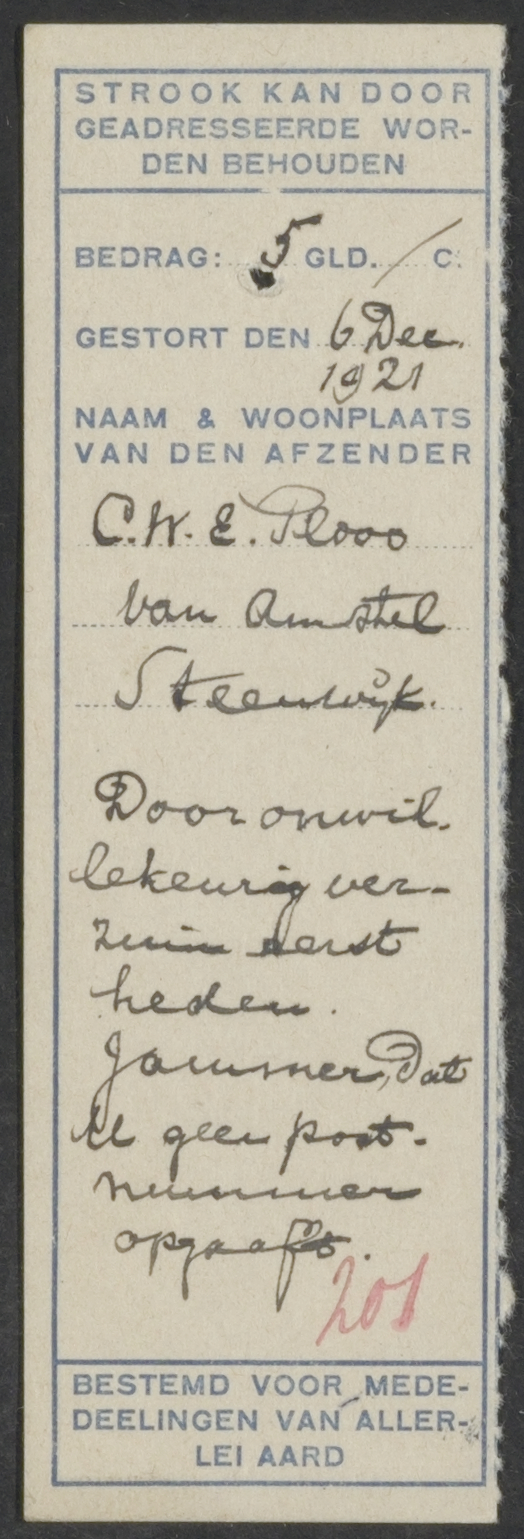 STROOK KAN DOOR
GEADRESSEERDE WOR-
DEN BEHOUDEN
BEDRAG: 5 GLD. / C.
GESTORT DEN 6 Dec.
1921
NAAM & WOONPLAATS
VAN DEN AFZENDER
C.W.E. Plooo
van Amstel
Steenwijk.
Door onwil-
lekeurig ver-
zuim eerst
heden.
Jammer, dat
U geen post-
nummer
opgaaft.
201
BESTEMD VOOR MEDE-
DEELINGEN VAN ALLER-
LEI AARD